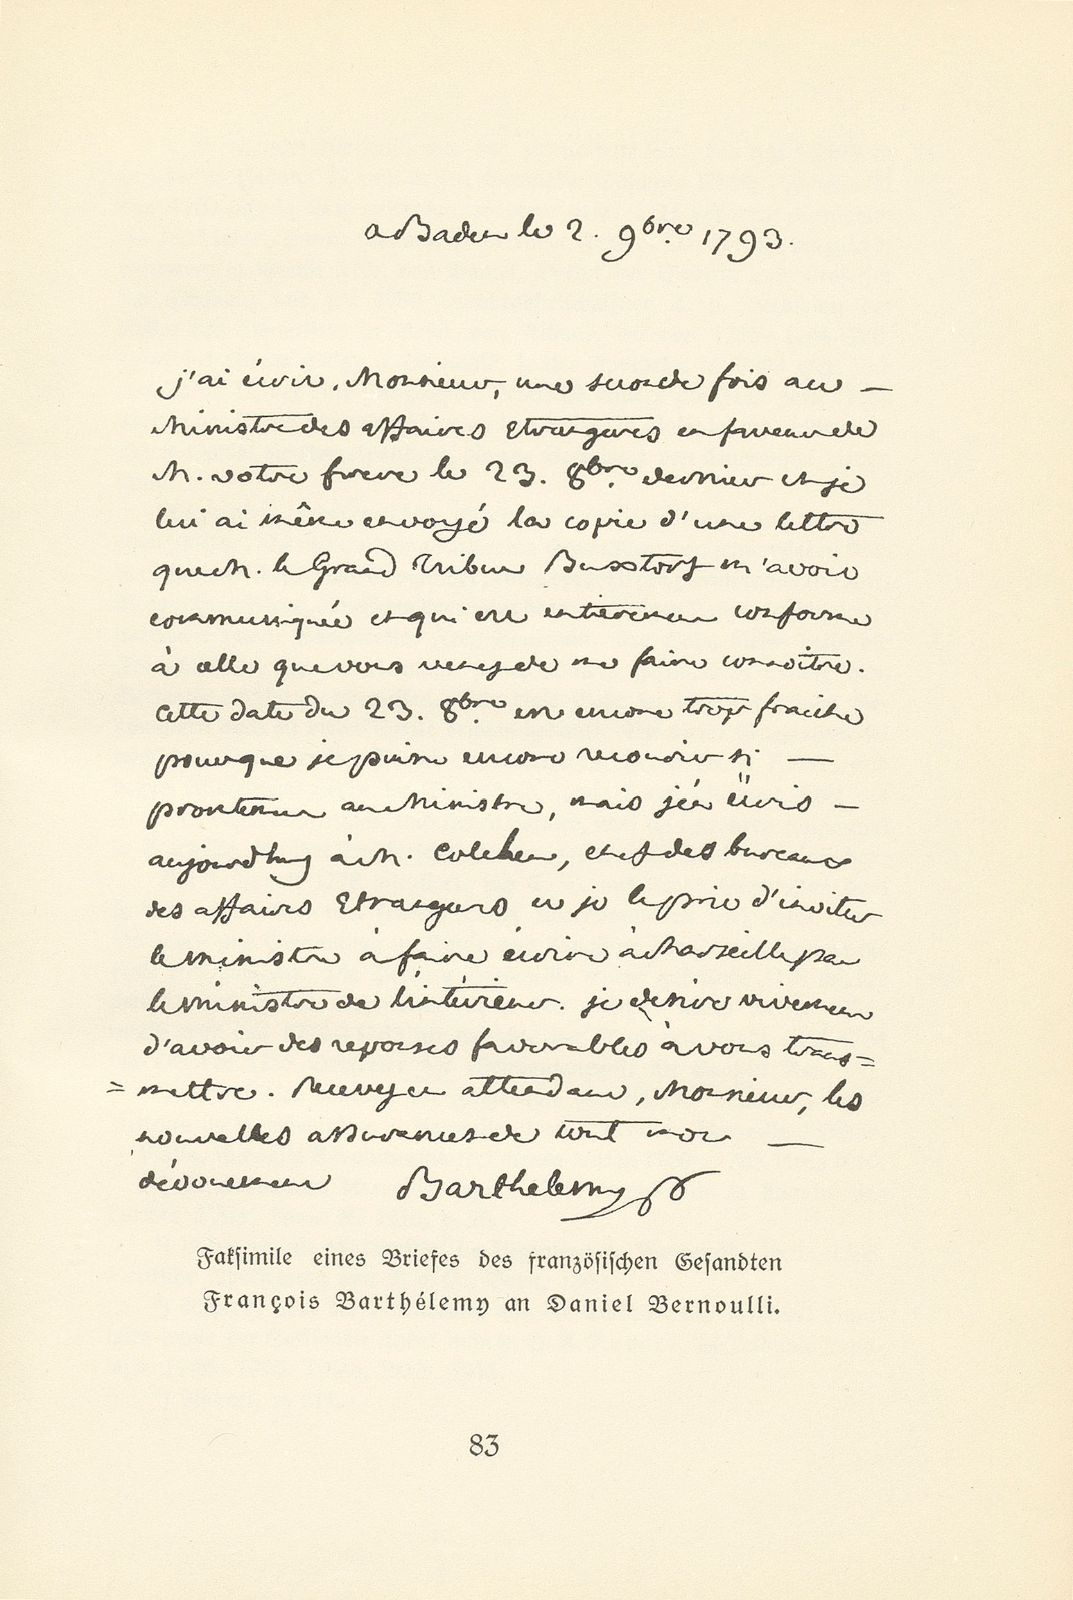 a Baden le 2. 9bre. 1793.
j'ai écrit, Monsieur, une seconde fois au —
Ministre des affaires Etrangeres en faveur de
M. votre frere le 23. 8bre. dernier et je
lui ai même envoyé la copie d'une lettre
que M. le Grand Tribun Buxtorf m'avoit
communiquée et qui est entierement conforme
à celle que vous venez de me faire connoître.
Cette date du 23. 8bre. est encore trop fraiche
pour que je puisse encore recourir si —
promtement au Ministre, mais j'écris —
aujourdhuy à M. Colchen, chef des bureaux
des affaires Etrangeres et je le prie d'inviter
le ministre à faire écrire à Marseille par
le ministre de l'intérieur. je desire vivement
d'avoir des reponses favorables à vous trans=
=mettre. Recevez en attendant, Monsieur, les
nouvelles assurances de tout mon —
dévouement Barthelemy
Faksimile eines Briefes des französischen Gesandten
François Barthélemy an Daniel Bernoulli.
83